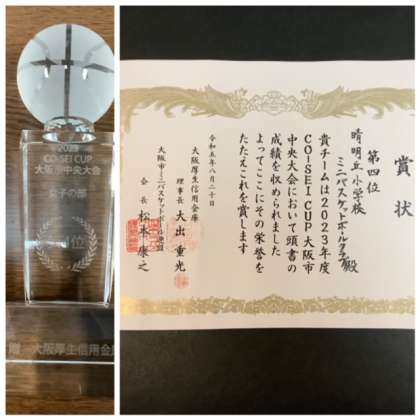 2023
CO-SEI CUP
大阪市中央大会
女子の部
位
贈 大阪厚生信用金庫
賞状
第四位
晴明丘小学校
ミニバスケットボールクラブ殿
貴チームは2023年度
CO-SEI CUP大阪市
中央大会において頭書の
成績を収められました
よってここにその栄誉を
たたえこれを賞します
令和五年八月二十日
大阪厚生信用金庫
理事長 大出重光
大阪市ミニバスケットボール連盟
会長 松本康之